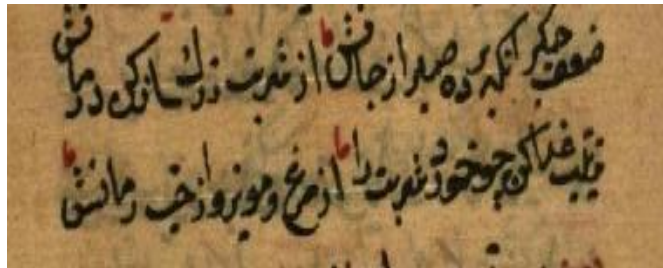 ضعف جگر انکه برده صبر از جانش از شربت زرك ساز کن درمانش
قلیه غذا کن چو خورد شربت را از مرغ و مویز و از حب رمانش